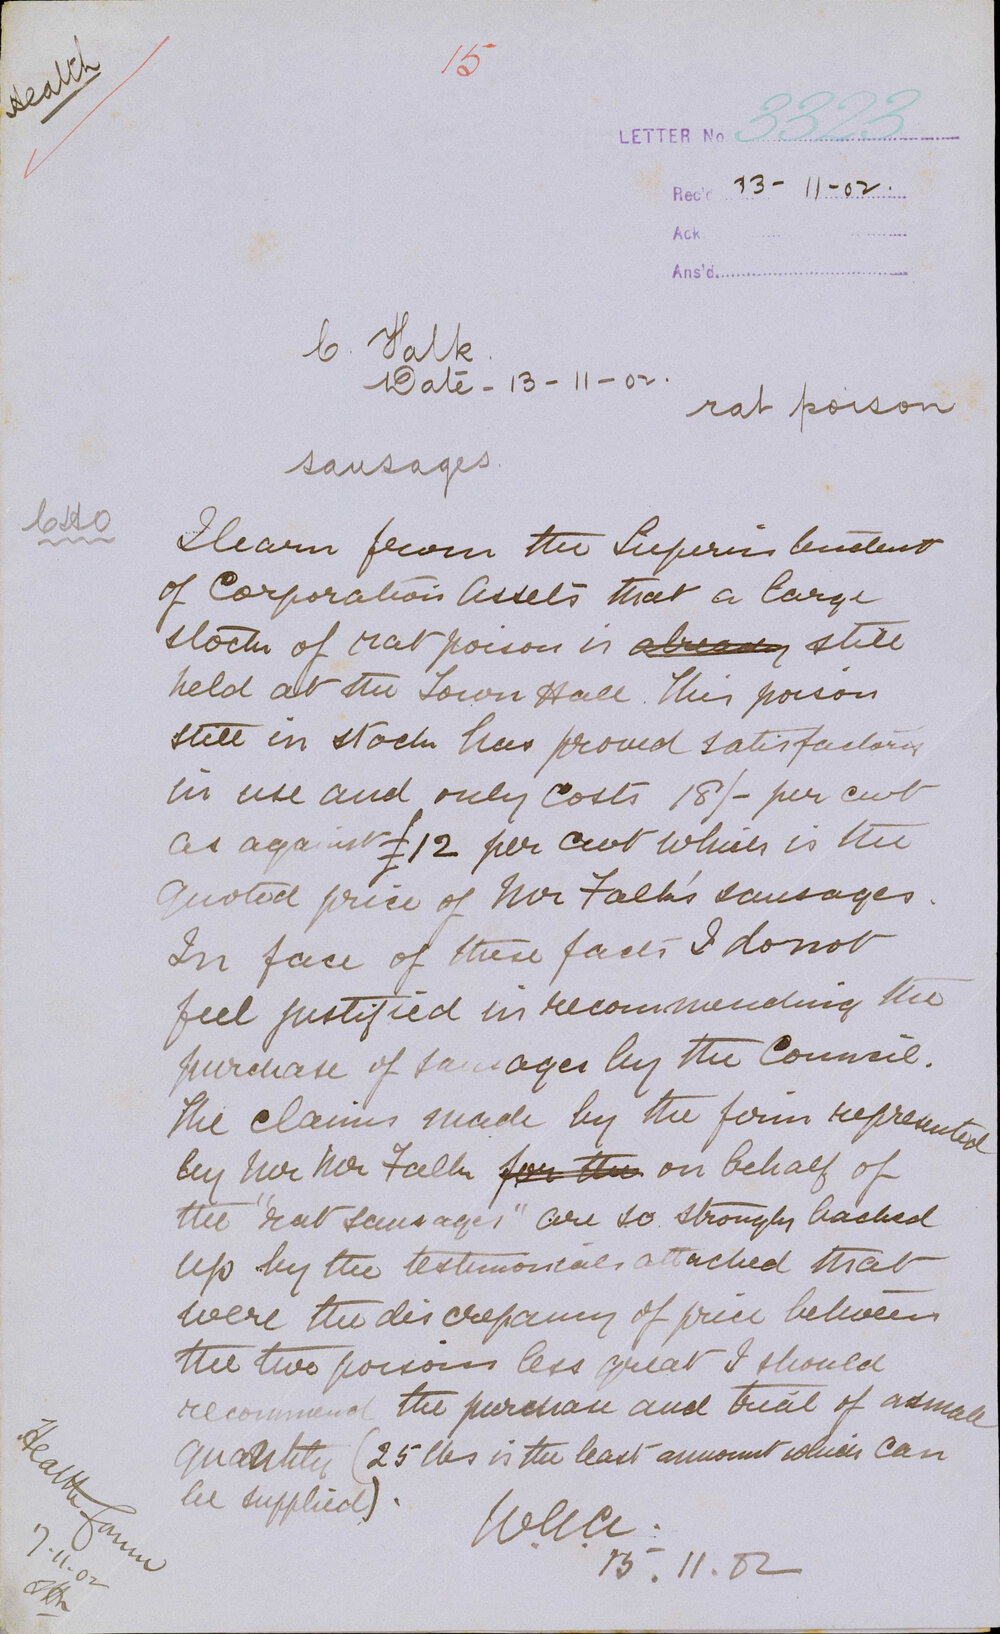 Health
15
LETTER No 3323
Rec'd 13-11-02.
Ack
Ans'd.
C. Falk.
Date - 13-11-02.
rat poison
sausages.
CHO
I learn from the Superintendent
of Corporation Assets that a large
stock of rat poison is already still
held at the Town Hall. This poison
still in stock has proved satisfactory
in use and only costs 18/- per cwt
as against £12 per cwt which is the
quoted price of Mr Falk's sausages.
In face of these facts I do not
feel justified in recommending the
purchase of sausages by the Council.
The claims made by the firm represented
by Mr Mr Falk for the on behalf of
the "rat sausages" are so strongly backed
up by the testimonials attached that
were the discrepancy of price between
the two poisons less great I should
recommend the purchase and trial of a small
quantity (25 lbs is the least amount which can
be supplied).
15.11.02
Health Comm
17.11.02